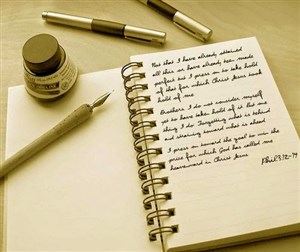 Not that I have already obtained
all this or have already been made
perfect but I press on to take hold
of that for which Christ Jesus took
hold of me
Brothers I do not consider myself
yet to have taken hold of it But one
thing I do Forgetting what is behind
and straining toward what is ahead
I press on toward the goal to win the
prize for which God has called me
heavenward in Christ Jesus
Phil 3.12-14